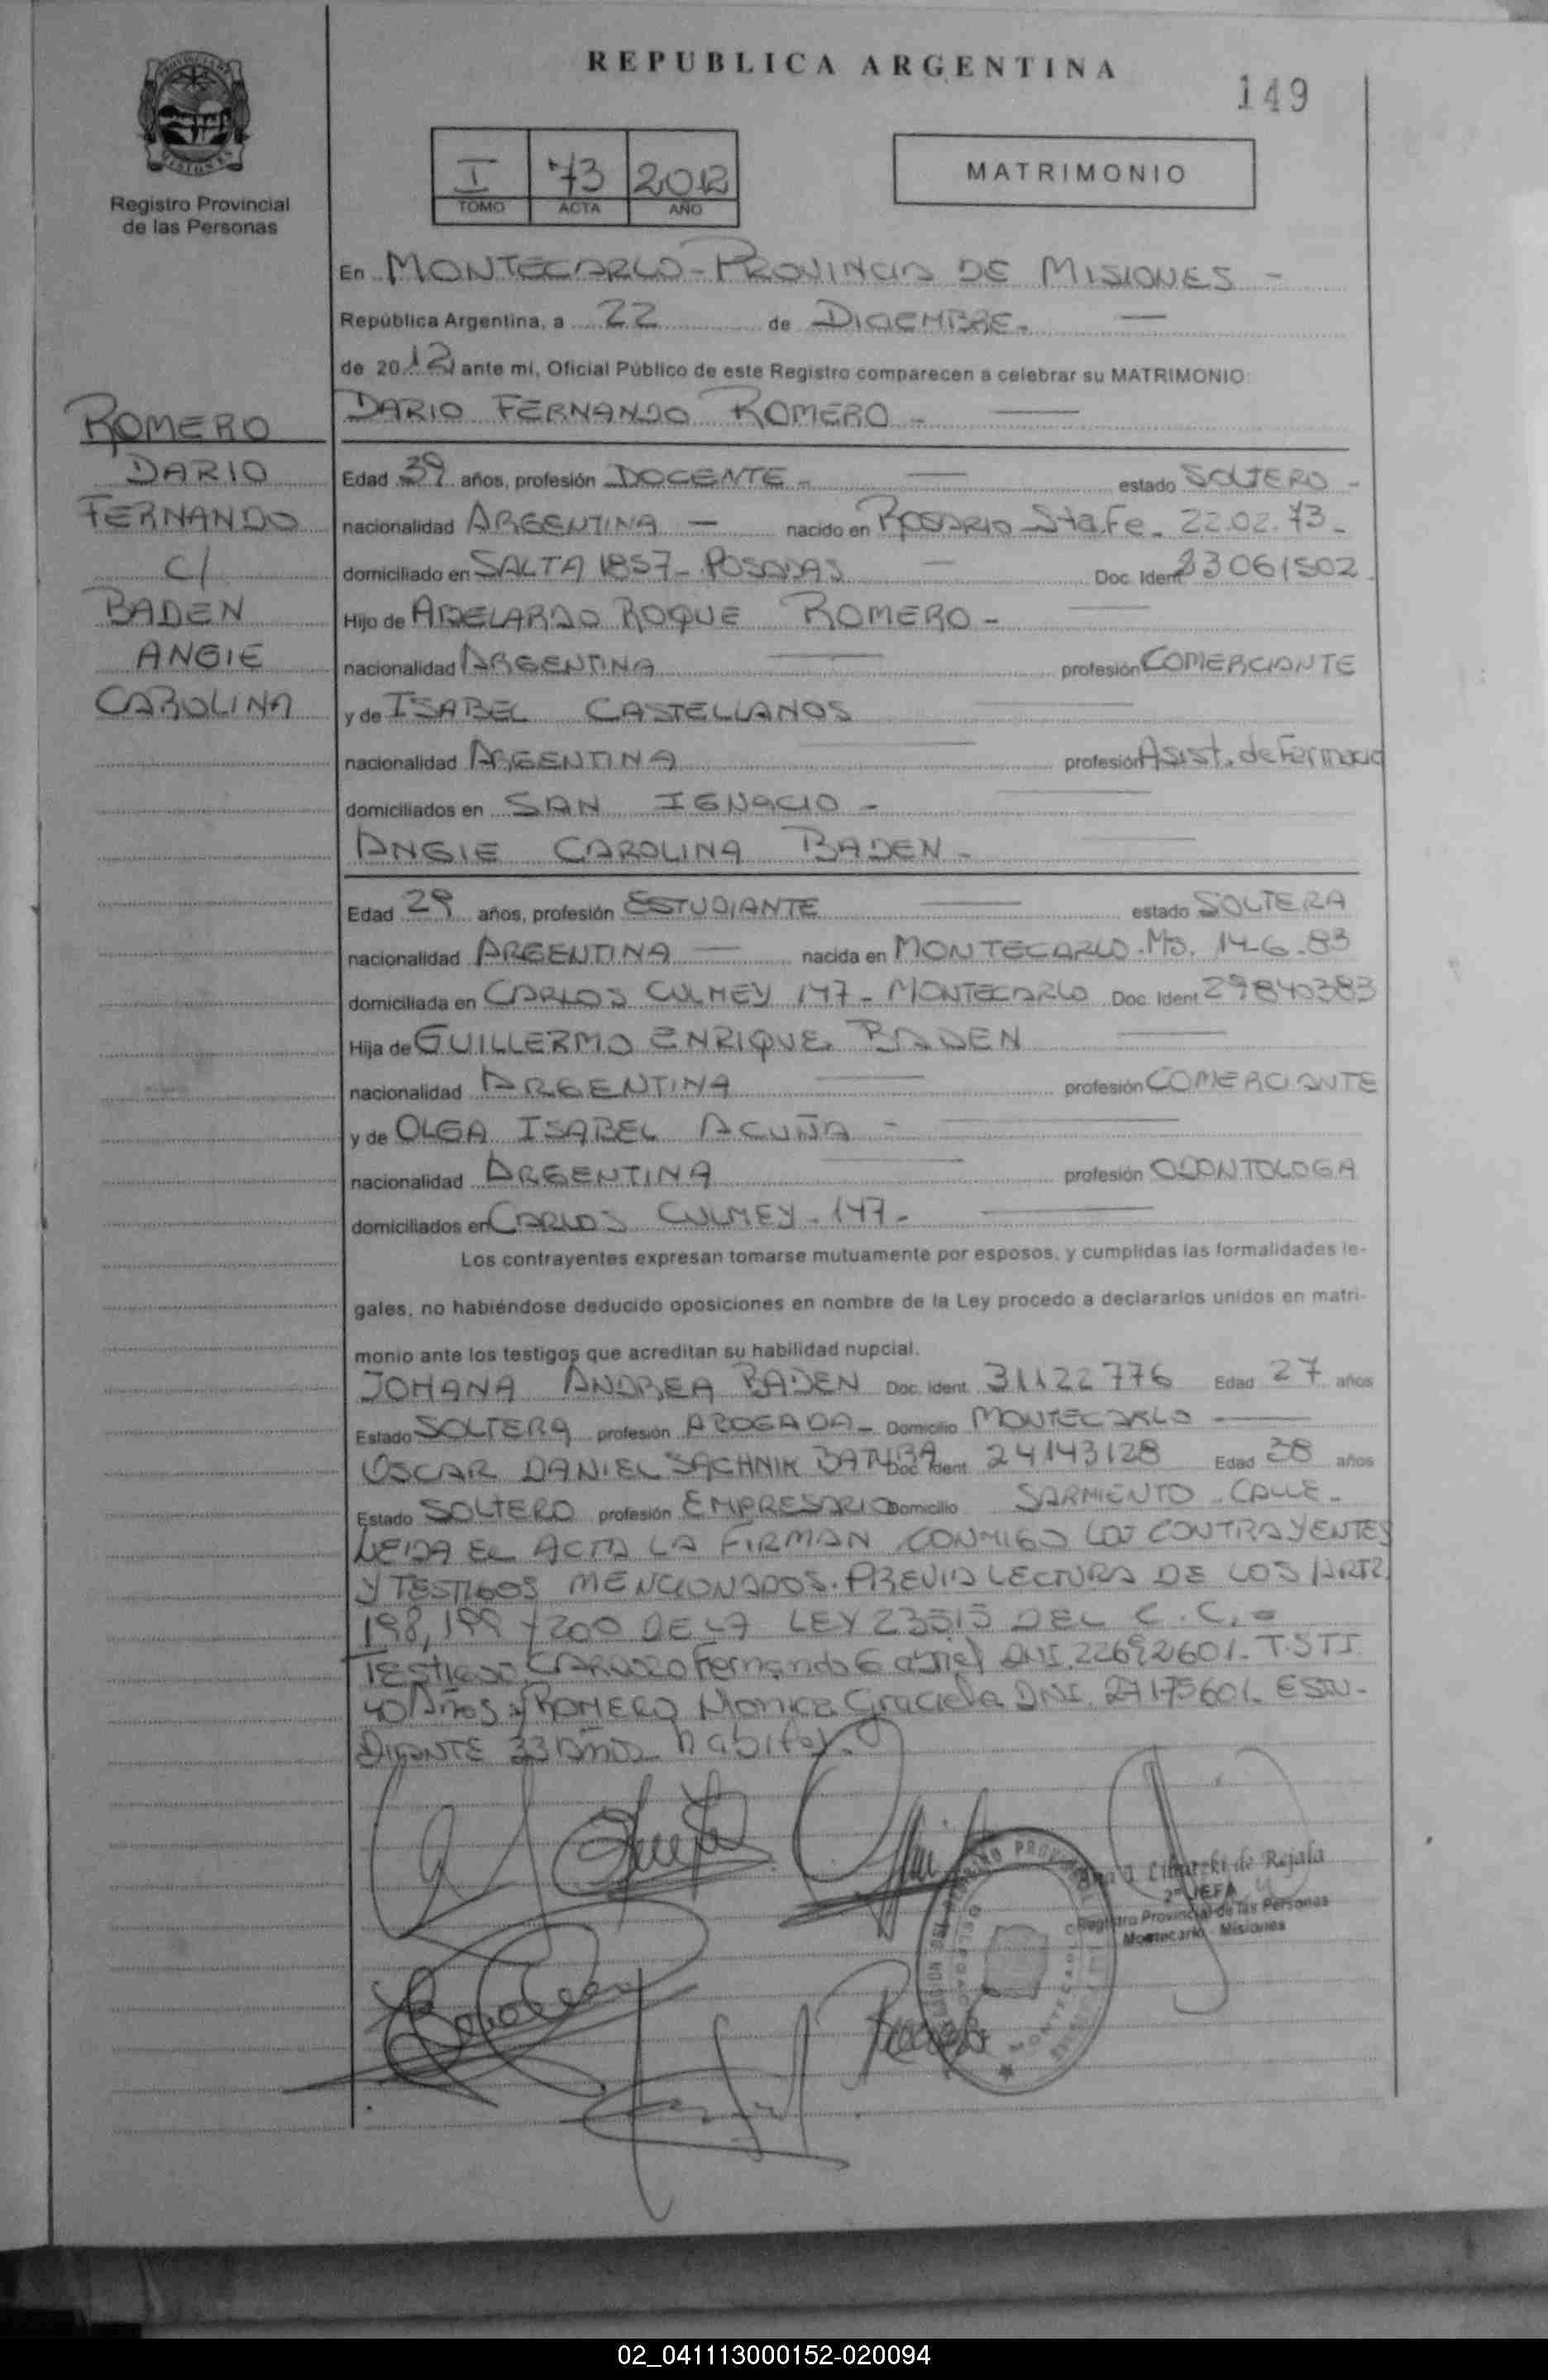 REPUBLICA ARGENTINA
149
I 73 2012
TOMO ACTA AÑO
MATRIMONIO
Registro Provincial
de las Personas
En MONTECARLO - PROVINCIA DE MISIONES -
República Argentina, a 22 de DICIEMBRE.
de 2012 ante mí, Oficial Público de este Registro comparecen a celebrar su MATRIMONIO:
DARIO FERNANDO ROMERO -
ROMERO
DARIO
FERNANDO
C/
BADEN
ANGIE
CAROLINA
Edad 39 años, profesión DOCENTE - estado SOLTERO -
nacionalidad ARGENTINA - nacido en ROSARIO Sta.Fe. 22.02.73.
domiciliado en SALTA 1857 - POSADAS Doc. Ident. 23061502
Hijo de ADELARDO ROQUE ROMERO -
nacionalidad ARGENTINA profesión COMERCIANTE
y de ISABEL CASTELLANOS
nacionalidad ARGENTINA profesión Asist. de Farmacia
domiciliados en SAN IGNACIO -
ANGIE CAROLINA BADEN -
Edad 29 años, profesión ESTUDIANTE estado SOLTERA
nacionalidad ARGENTINA - nacida en MONTECARLO. Ms. 14-6-83
domiciliada en CARLOS CULMEY 147 - MONTECARLO Doc. Ident. 29840383
Hija de GUILLERMO ENRIQUE BADEN
nacionalidad ARGENTINA profesión COMERCIANTE
y de OLGA ISABEL ACUÑA -
nacionalidad ARGENTINA profesión ODONTOLOGA
domiciliados en CARLOS CULMEY - 147 -
Los contrayentes expresan tomarse mutuamente por esposos, y cumplidas las formalidades le-
gales, no habiéndose deducido oposiciones en nombre de la Ley procedo a declararlos unidos en matri-
monio ante los testigos que acreditan su habilidad nupcial.
JOHANA ANDREA BADEN Doc. Ident. 31122776 Edad 27 años
Estado SOLTERA profesión ABOGADA - Domicilio MONTECARLO
OSCAR DANIEL SACHNIK Doc. Ident. 24143128 Edad 38 años
Estado SOLTERO profesión EMPRESARIO Domicilio SARMIENTO - CALLE -
LEIDA EL ACTA LA FIRMAN CONMIGO LOS CONTRAYENTES
Y TESTIGOS MENCIONADOS. PREVIA LECTURA DE LOS ARTS
198, 199 Y 200 DE LA LEY 23515 DEL C.C. =
TESTIGO Fernando Gabriel DNI. 22692601.
40 Años y ROMERO Monica Graciela DNI. 27175601. ESTU-
DIANTE 33 Años
Libarzki de Rejala
2º JEFA
Registro Provincial de las Personas
Montecarlo - Misiones
02_041113000152-020094